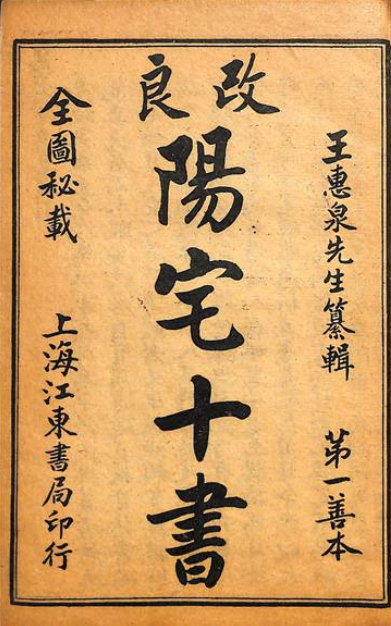 改良
王惠泉先生纂輯 第一善本
陽宅十書
全圖秘載
上海江東書局印行